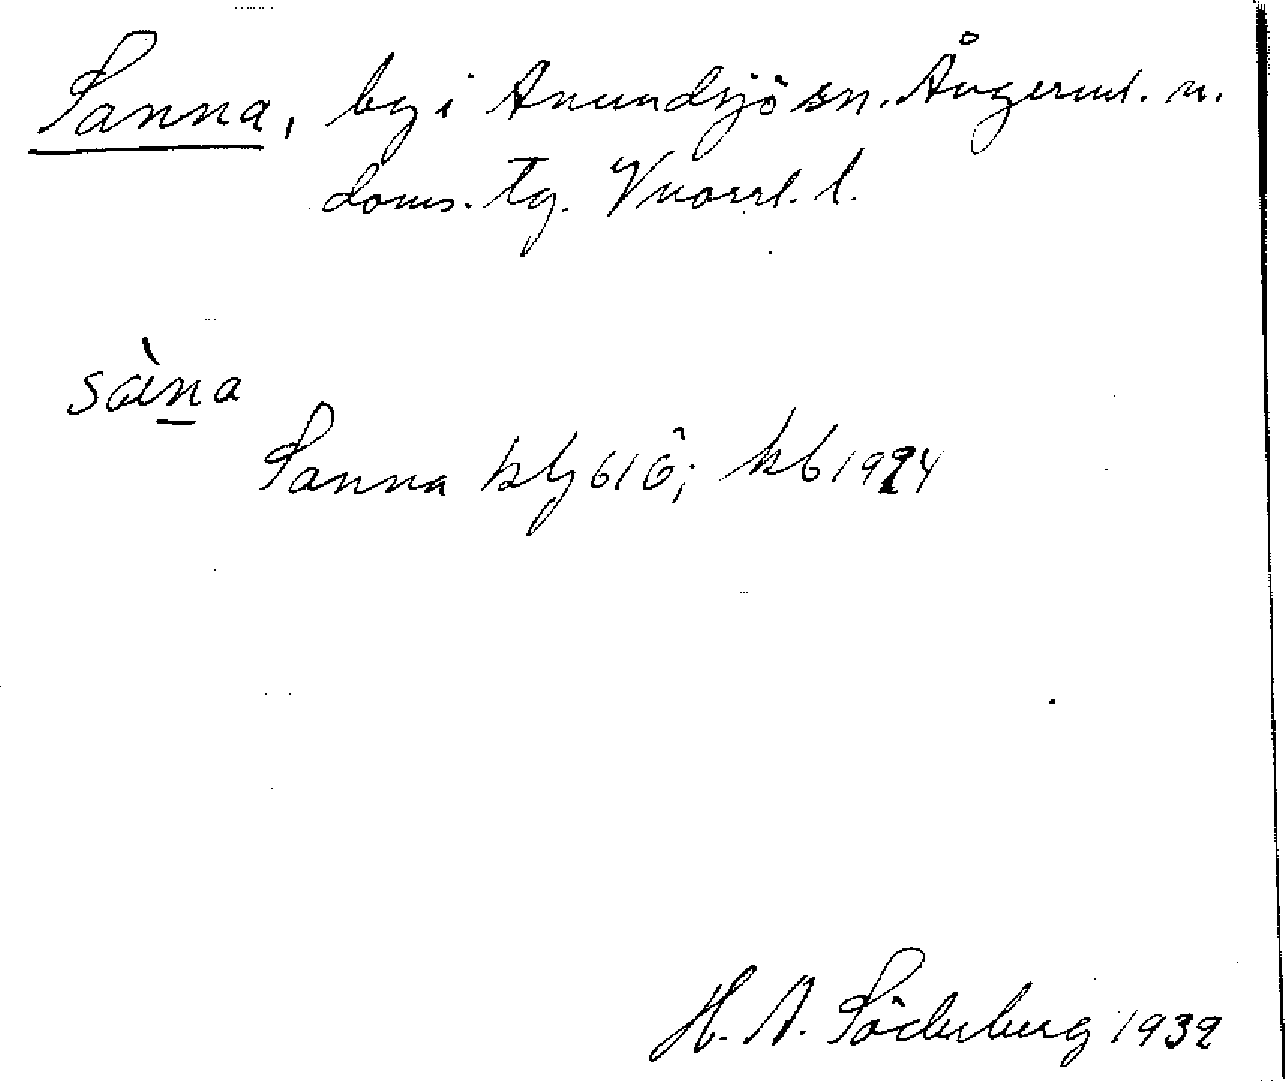 Sanna, by i Anundsjö sn. Ångerml. n.
doms. tg. Vnorrl. l.
sàna
Sanna blg 616; kb 1924
H. A. Söderberg 1932